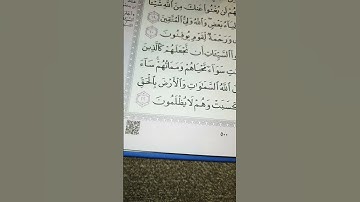 هُمْ لَن يُغْنُوا۟ عَنكَ مِنَ ٱللَّهِ شَيْـًٔا
بَعْضٍ وَٱللَّهُ وَلِىُّ ٱلْمُتَّقِينَ
وَرَحْمَةٌ لِّقَوْمٍ يُوقِنُونَ
ٱلسَّيِّـَٔاتِ أَن نَّجْعَلَهُمْ كَٱلَّذِينَ
سَوَآءً مَّحْيَاهُمْ وَمَمَاتُهُمْ سَآءَ
ٱللَّهُ ٱلسَّمَٰوَٰتِ وَٱلْأَرْضَ بِٱلْحَقِّ
كَسَبَتْ وَهُمْ لَا يُظْلَمُونَ
٥٠٠